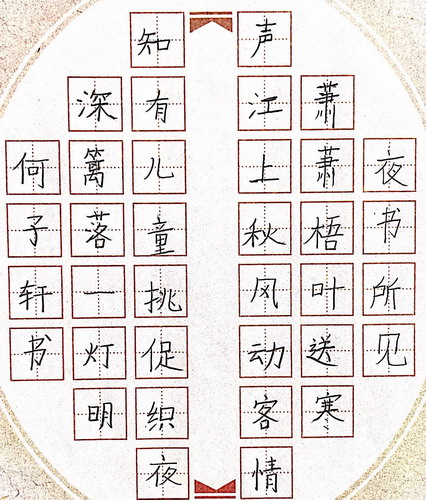 夜书所见
萧萧梧叶送寒
声江上秋风动客情
知有儿童挑促织夜
深篱落一灯明
何子轩书